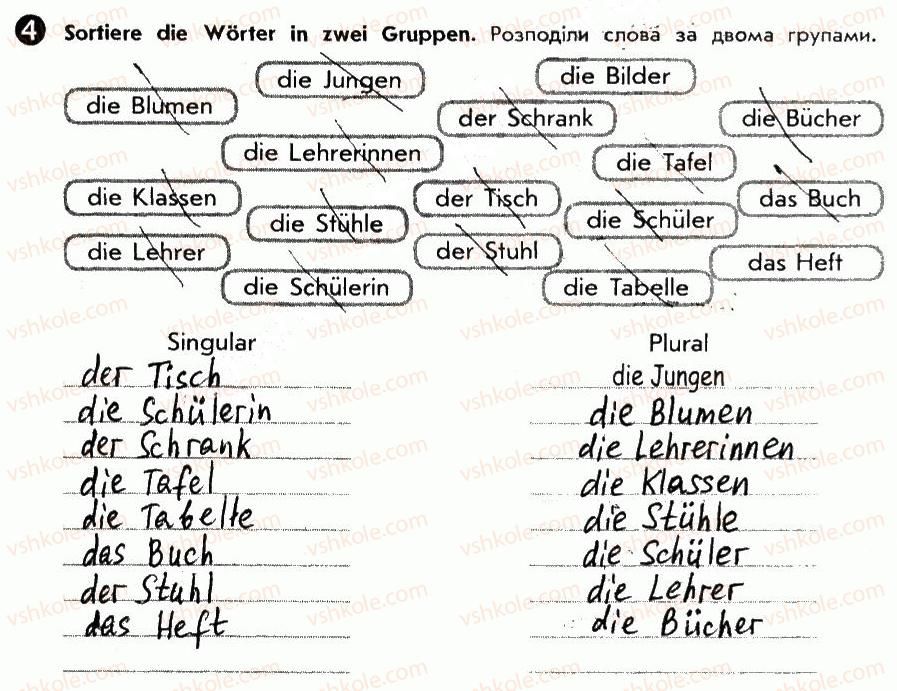 4 Sortiere die Wörter in zwei Gruppen. Розподіли слова за двома групами.
die Jungen die Bilder
die Blumen der Schrank die Bücher
die Lehrerinnen die Tafel
die Klassen der Tisch das Buch
die Stühle die Schüler
die Lehrer der Stuhl das Heft
die Schülerin die Tabelle
Singular Plural
der Tisch die Jungen
die Schülerin die Blumen
der Schrank die Lehrerinnen
die Tafel die Klassen
die Tabelle die Stühle
das Buch die Schüler
der Stuhl die Lehrer
das Heft die Bücher
vshkole.com